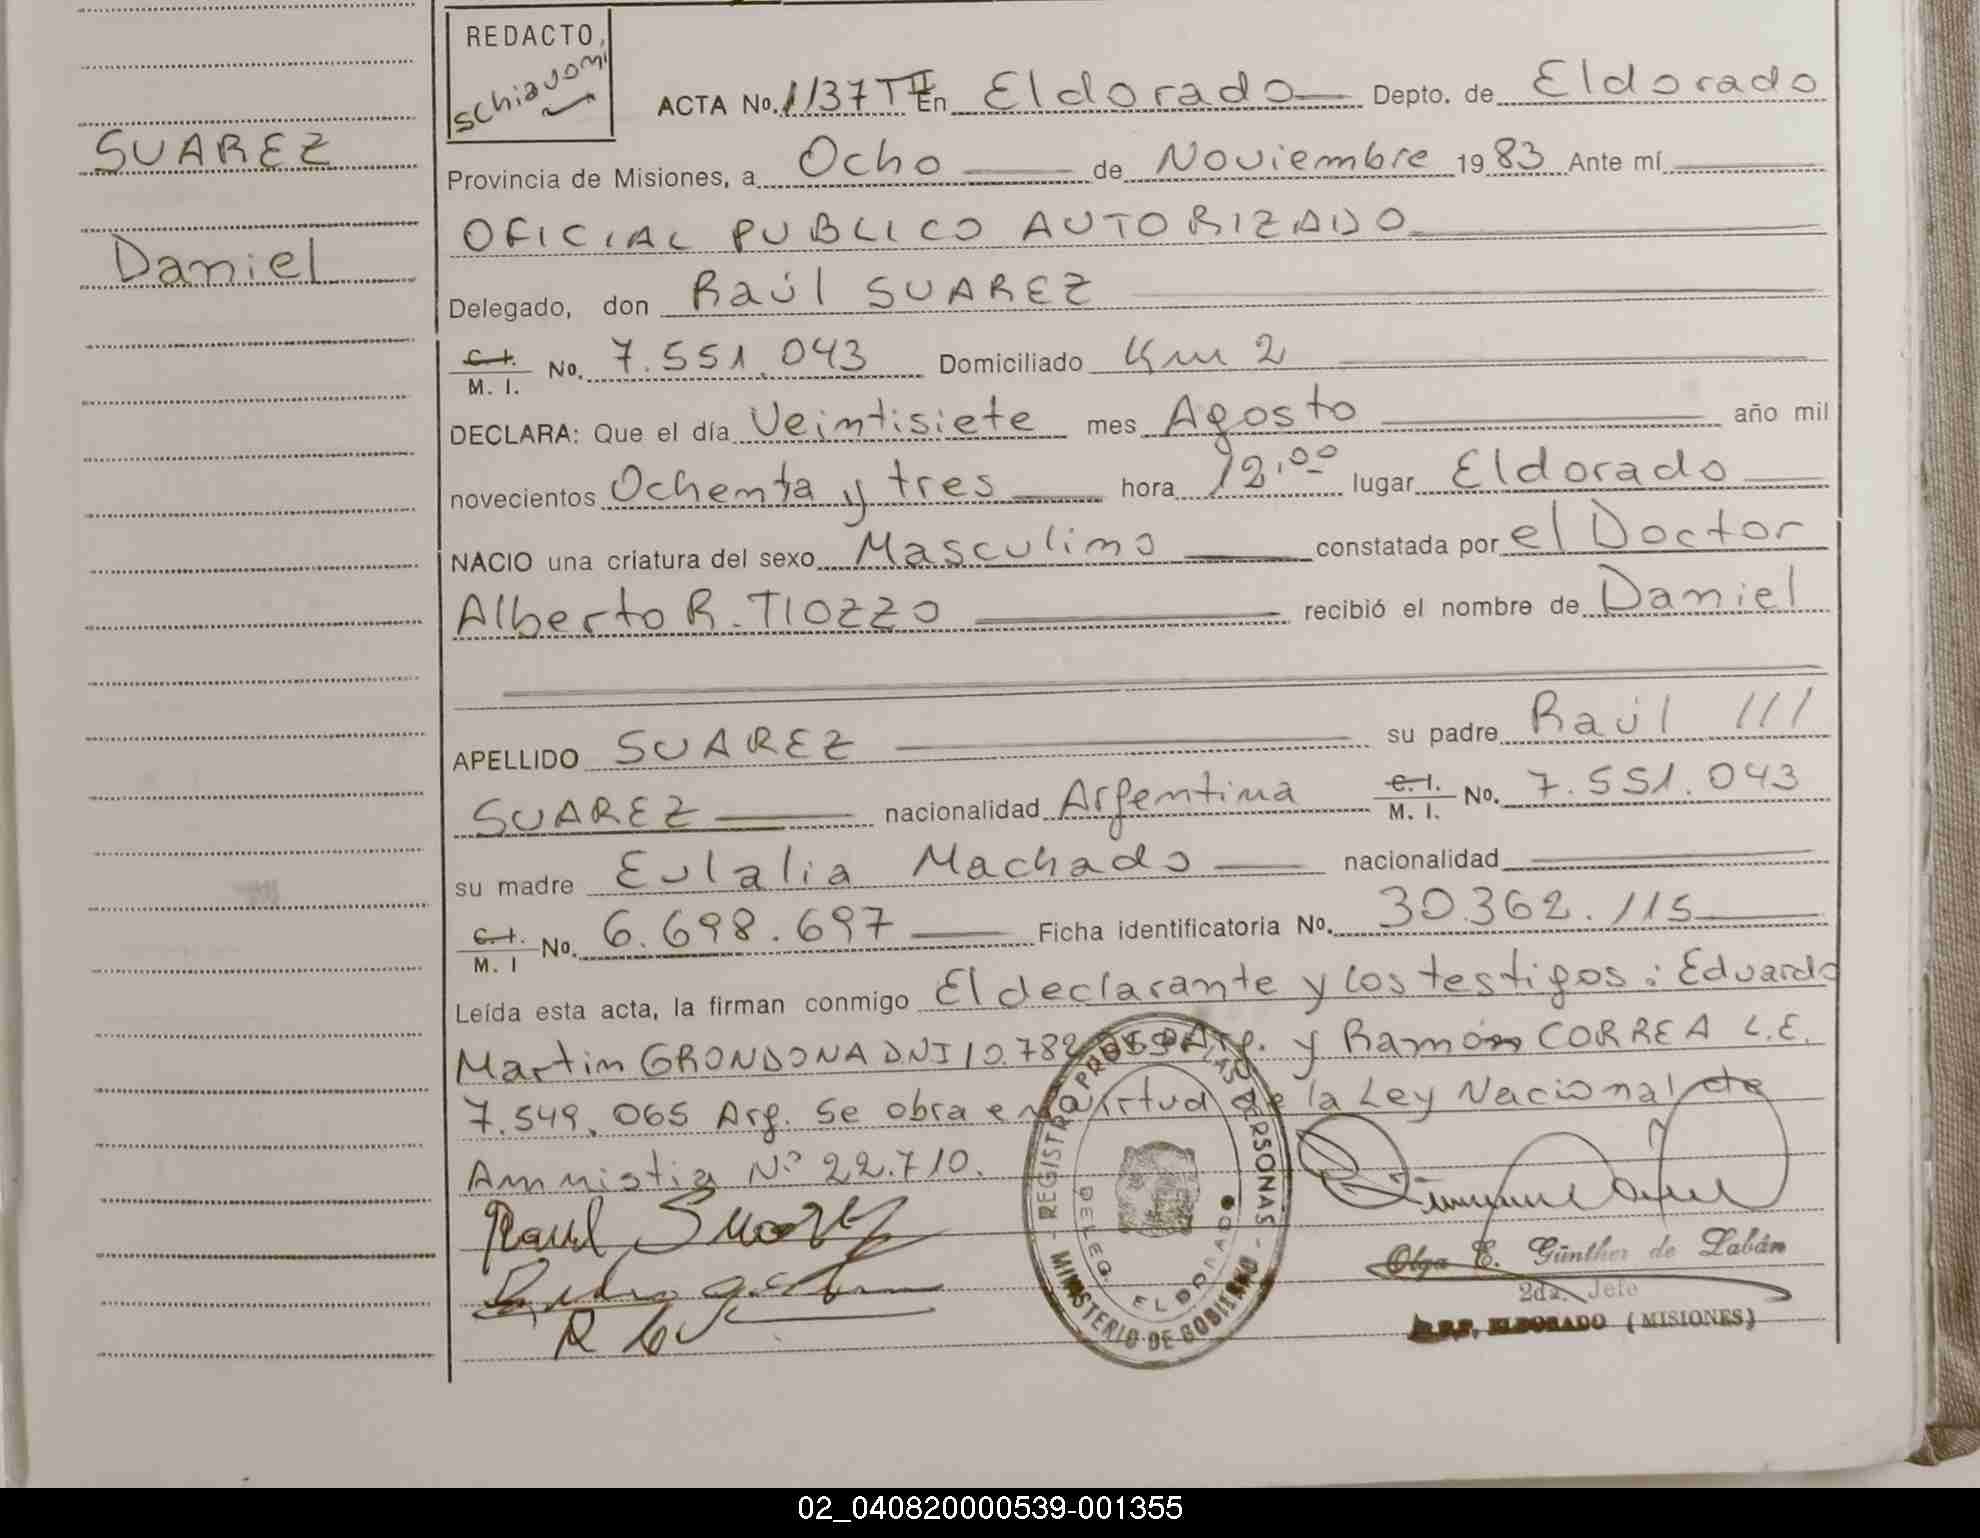 REDACTO
Schiavoni
SUAREZ
Daniel
ACTA No. 1137 T II En Eldorado Depto. de Eldorado
Provincia de Misiones, a Ocho de Noviembre 1983 Ante mí
OFICIAL PUBLICO AUTORIZADO
Delegado, don Raúl SUAREZ
C. I. M. I. No. 7.551.043 Domiciliado Km 2
DECLARA: Que el día Veintisiete mes Agosto año mil
novecientos Ochenta y tres hora 12,00 lugar Eldorado
NACIO una criatura del sexo Masculino constatada por el Doctor
Alberto R. TIOZZO recibió el nombre de Daniel
APELLIDO SUAREZ su padre Raúl ///
SUAREZ nacionalidad Argentina C. I. M. I. No. 7.551.043
su madre Eulalia Machado nacionalidad
C. I. M. I No. 6.698.697 Ficha identificatoria No. 30.362.115
Leída esta acta, la firman conmigo El declarante y los testigos: Eduardo
Martin GRONDONA DNI 10.782 Arg. y Ramón CORREA L.E.
7.549.065 Arg. Se obra en virtud de la Ley Nacional de
Amnistia Nº 22.710.
Raul Suarez
REGISTRO PROV. DE LAS PERSONAS - MINISTERIO DE GOBIERNO
DELEG. ELDORADO
Olga E. Günther de Labán
2da. Jefe
ELDORADO (MISIONES)
02_040820000539-001355